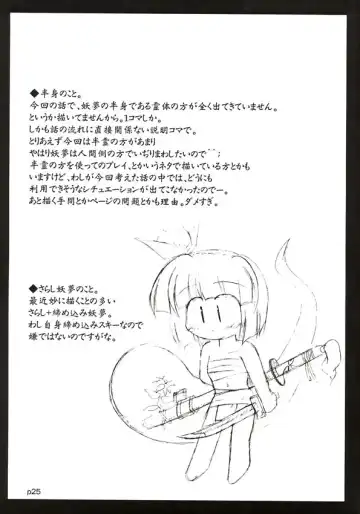 ◆半身のこと。
今回の話で、妖夢の半身である霊体の方が全く出てきていません。
というか描いてませんから。1コマしか。
しかも話の流れに直接関係ない説明コマで。
とりあえず今回は半霊の方があまり
やはり妖夢は人間側の方でいぢりまわしたいので^^;
半霊の方を使ってのプレイ、とかいうネタで描いている方とかも
いますけど、わしが今回考えた話の中では、どうにも
利用できそうなシチュエーションが出てこなかったのでー。
あと描く手間とかページの問題とかも理由。ダメすぎ。
◆さらし妖夢のこと。
最近妙に描くことの多い
さらし+締め込み妖夢。
わし自身締め込みスキーなので
嫌ではないのですがな。
p25